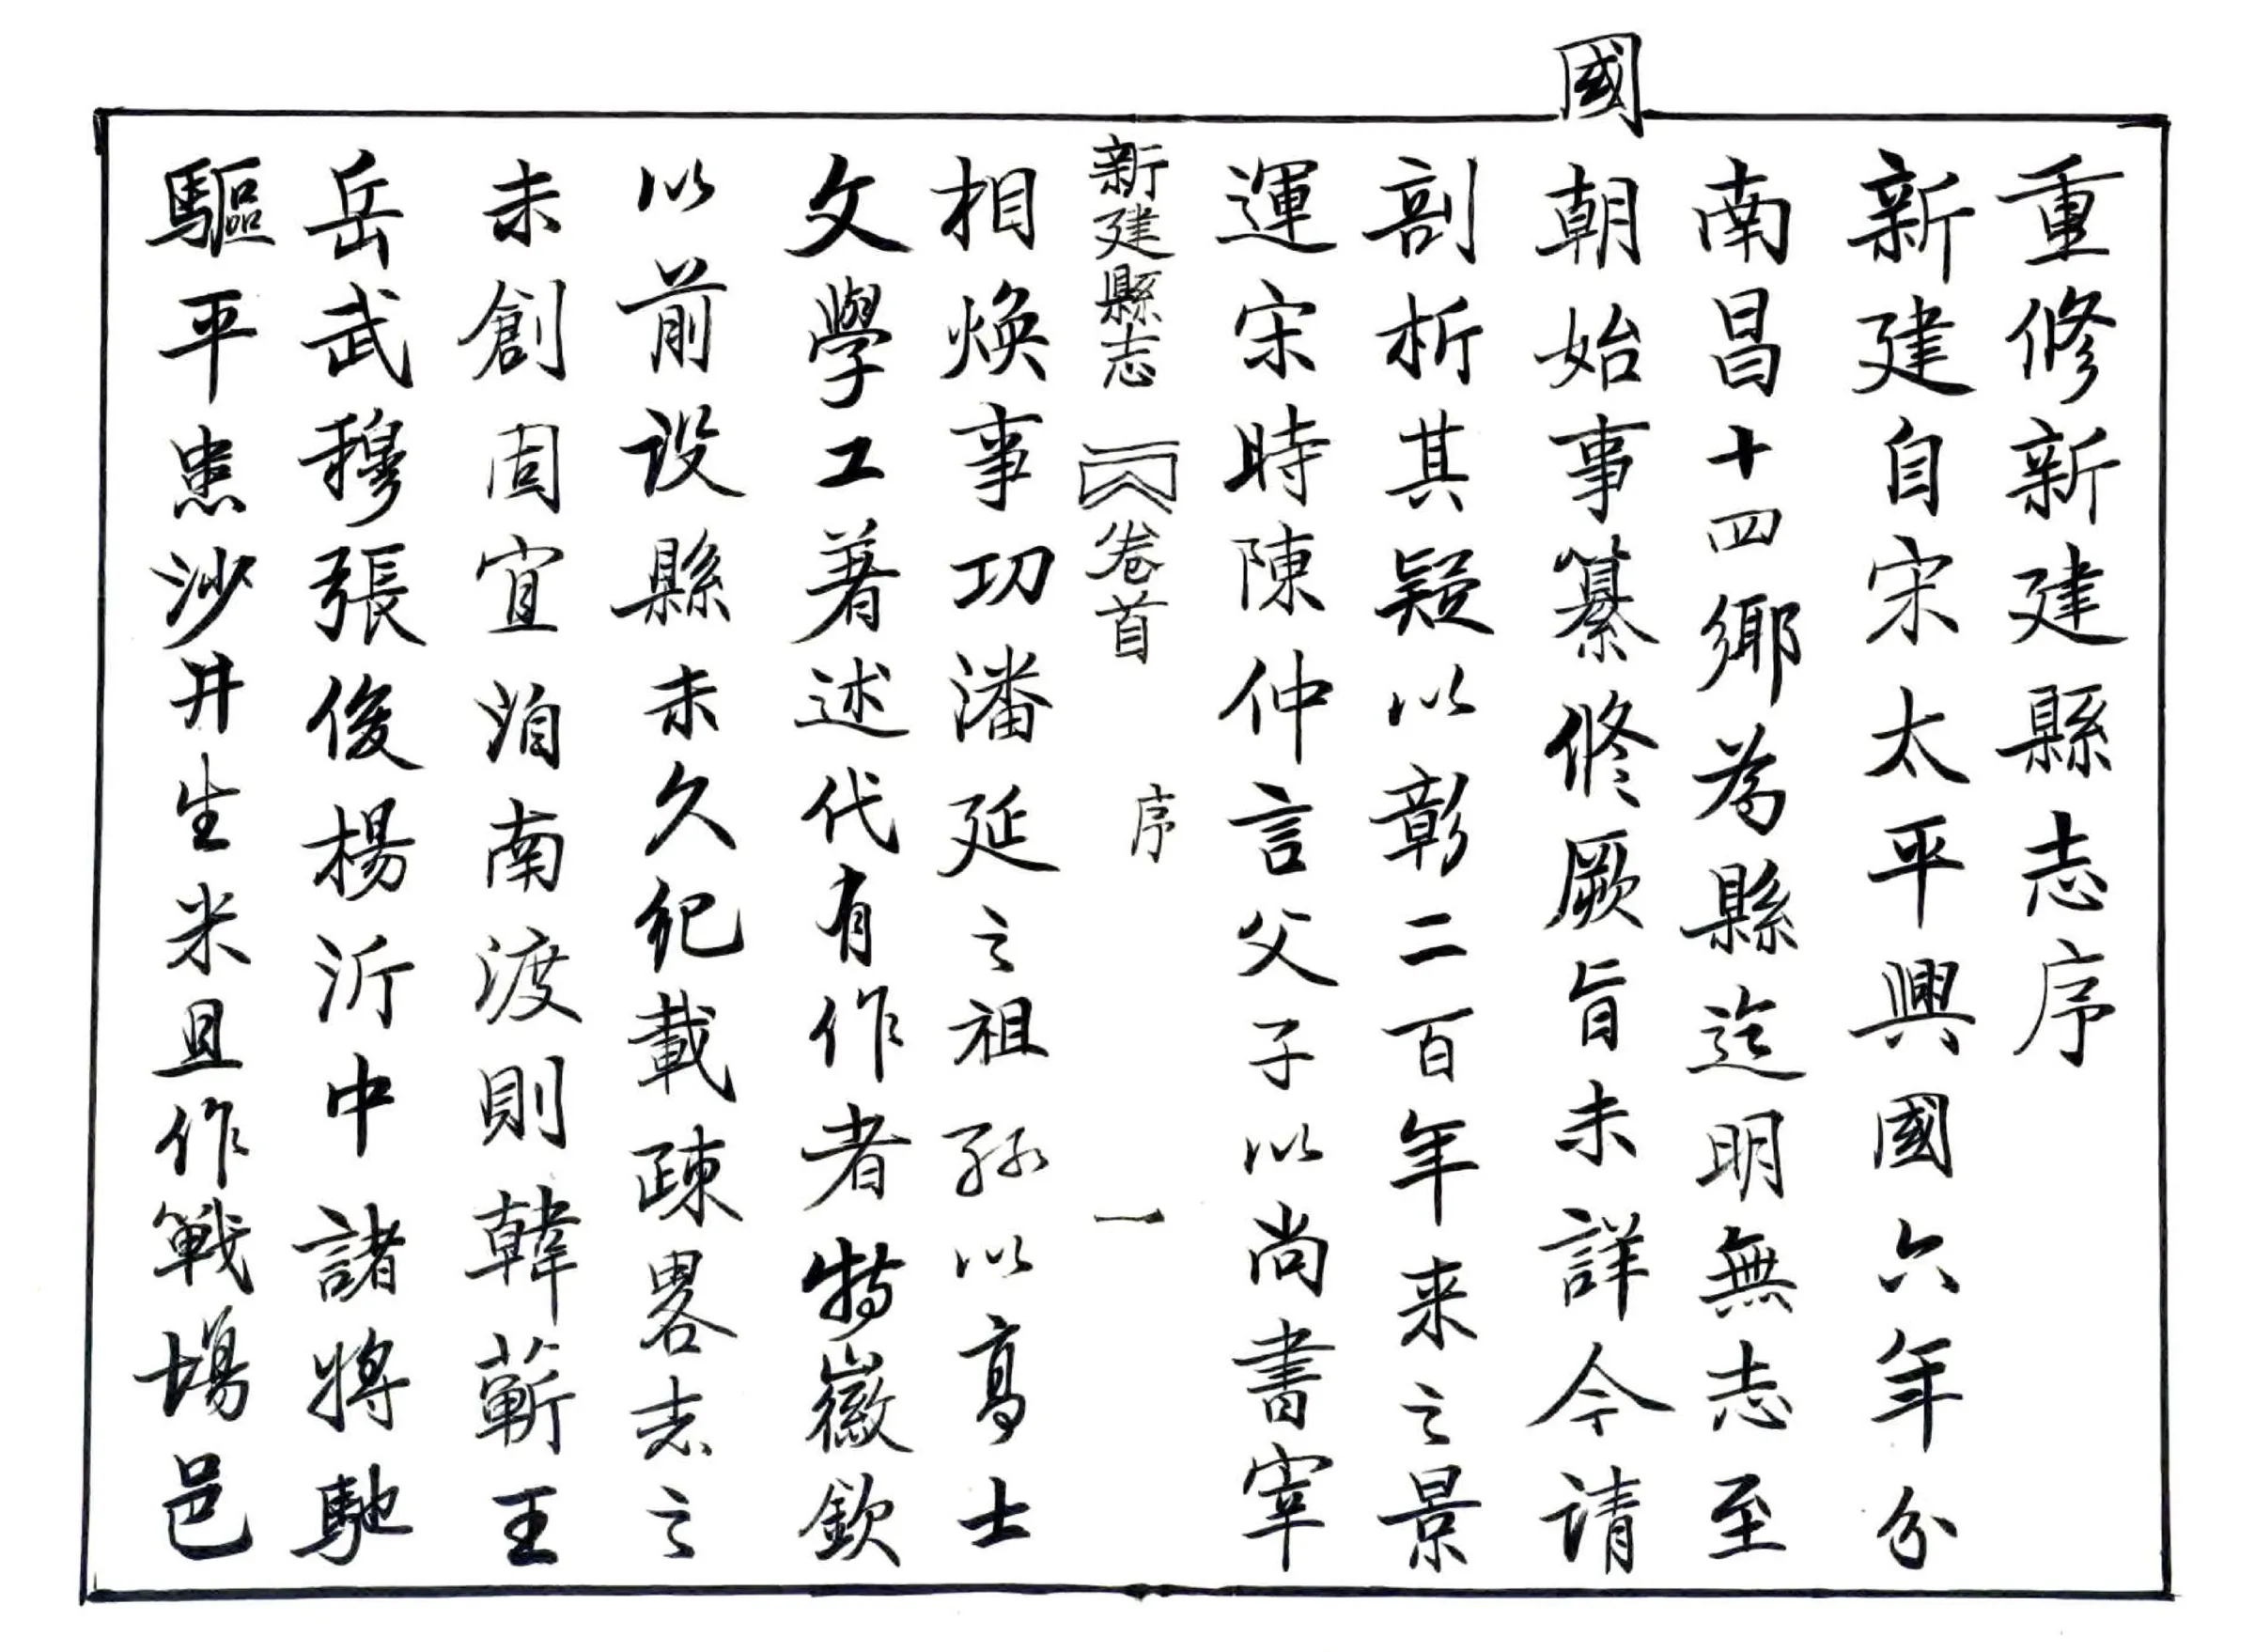 重修新建縣志序
新建自宋太平興國六年分
南昌十四鄉為縣迄明無志至
國朝始事纂修厥旨未詳今请
剖析其疑以彰二百年来之景
運宋時陳仲言父子以尚書宰
新建縣志 卷首 序 一
相焕事功潘延之祖孫以高士
文學工著述代有作者特徽欽
以前设縣未久纪載疎畧志之
未創固宜洎南渡則韓蘄王
岳武穆張俊楊沂中諸將馳
驅平患沙井生米且作戰場邑